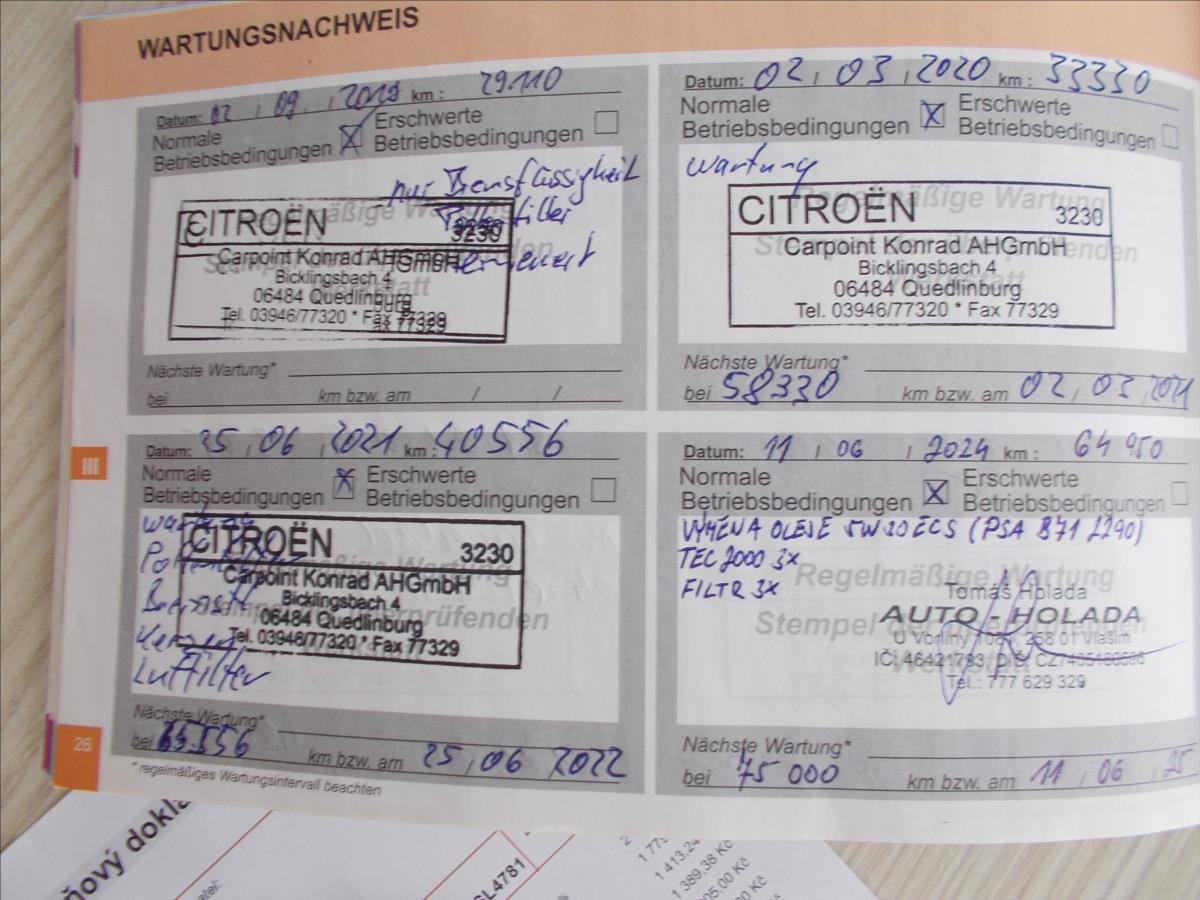 WARTUNGSNACHWEIS
Datum: 02 / 09. / 2019 km : 29110
Normale
Betriebsbedingungen X
Erschwerte
Betriebsbedingungen
nur Bremsflüssigkeit
Pollenfilter
erneuert
CITROËN 3230
Carpoint Konrad AHGmbH
Bicklingsbach 4
06484 Quedlinburg
Tel. 03946/77320 * Fax 77329
Nächste Wartung*
bei km bzw. am / /
Datum: 02 / 03 / 2020 km : 33330
Normale
Betriebsbedingungen X
Erschwerte
Betriebsbedingungen
Wartung
Regelmäßige Wartung
CITROËN 3230
Carpoint Konrad AHGmbH
Bicklingsbach 4
06484 Quedlinburg
Tel. 03946/77320 * Fax 77329
Nächste Wartung*
bei 58330 km bzw. am 02 / 03 / 2021
Datum: 25 / 06 / 2021 km : 40556
Normale
Betriebsbedingungen X
Erschwerte
Betriebsbedingungen
Wartung
CITROËN 3230
Carpoint Konrad AHGmbH
Bicklingsbach 4
06484 Quedlinburg
Tel. 03946/77320 * Fax 77329
Luftfilter
Nächste Wartung*
bei 65.556 km bzw. am 25 / 06 / 2022
* regelmäßiges Wartungsintervall beachten
Datum: 11 / 06 / 2024 km : 64 950
Normale
Betriebsbedingungen X
Erschwerte
Betriebsbedingungen
VÝMĚNA OLEJE 5W30 ECS (PSA B71 2290)
TEC 2000 3x
FILTR 3x
Regelmäßige Wartung
Stempel der
Tomáš Holada
AUTO - HOLADA
U Vorliny 258 01 Vlašim
IČ: 46421783, DIČ: 
Tel.: 777 629 329
Nächste Wartung*
bei 75 000 km bzw. am 11 / 06 / 25
III
26
ňový dokla
SL4781
1 413,24
1 389,38 Kč
05,00 Kč
00 Kč
Kč